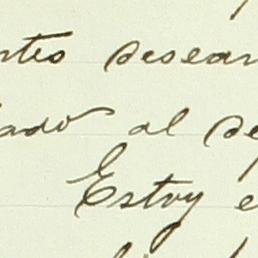 rtes desean
ado al se
Estoy e